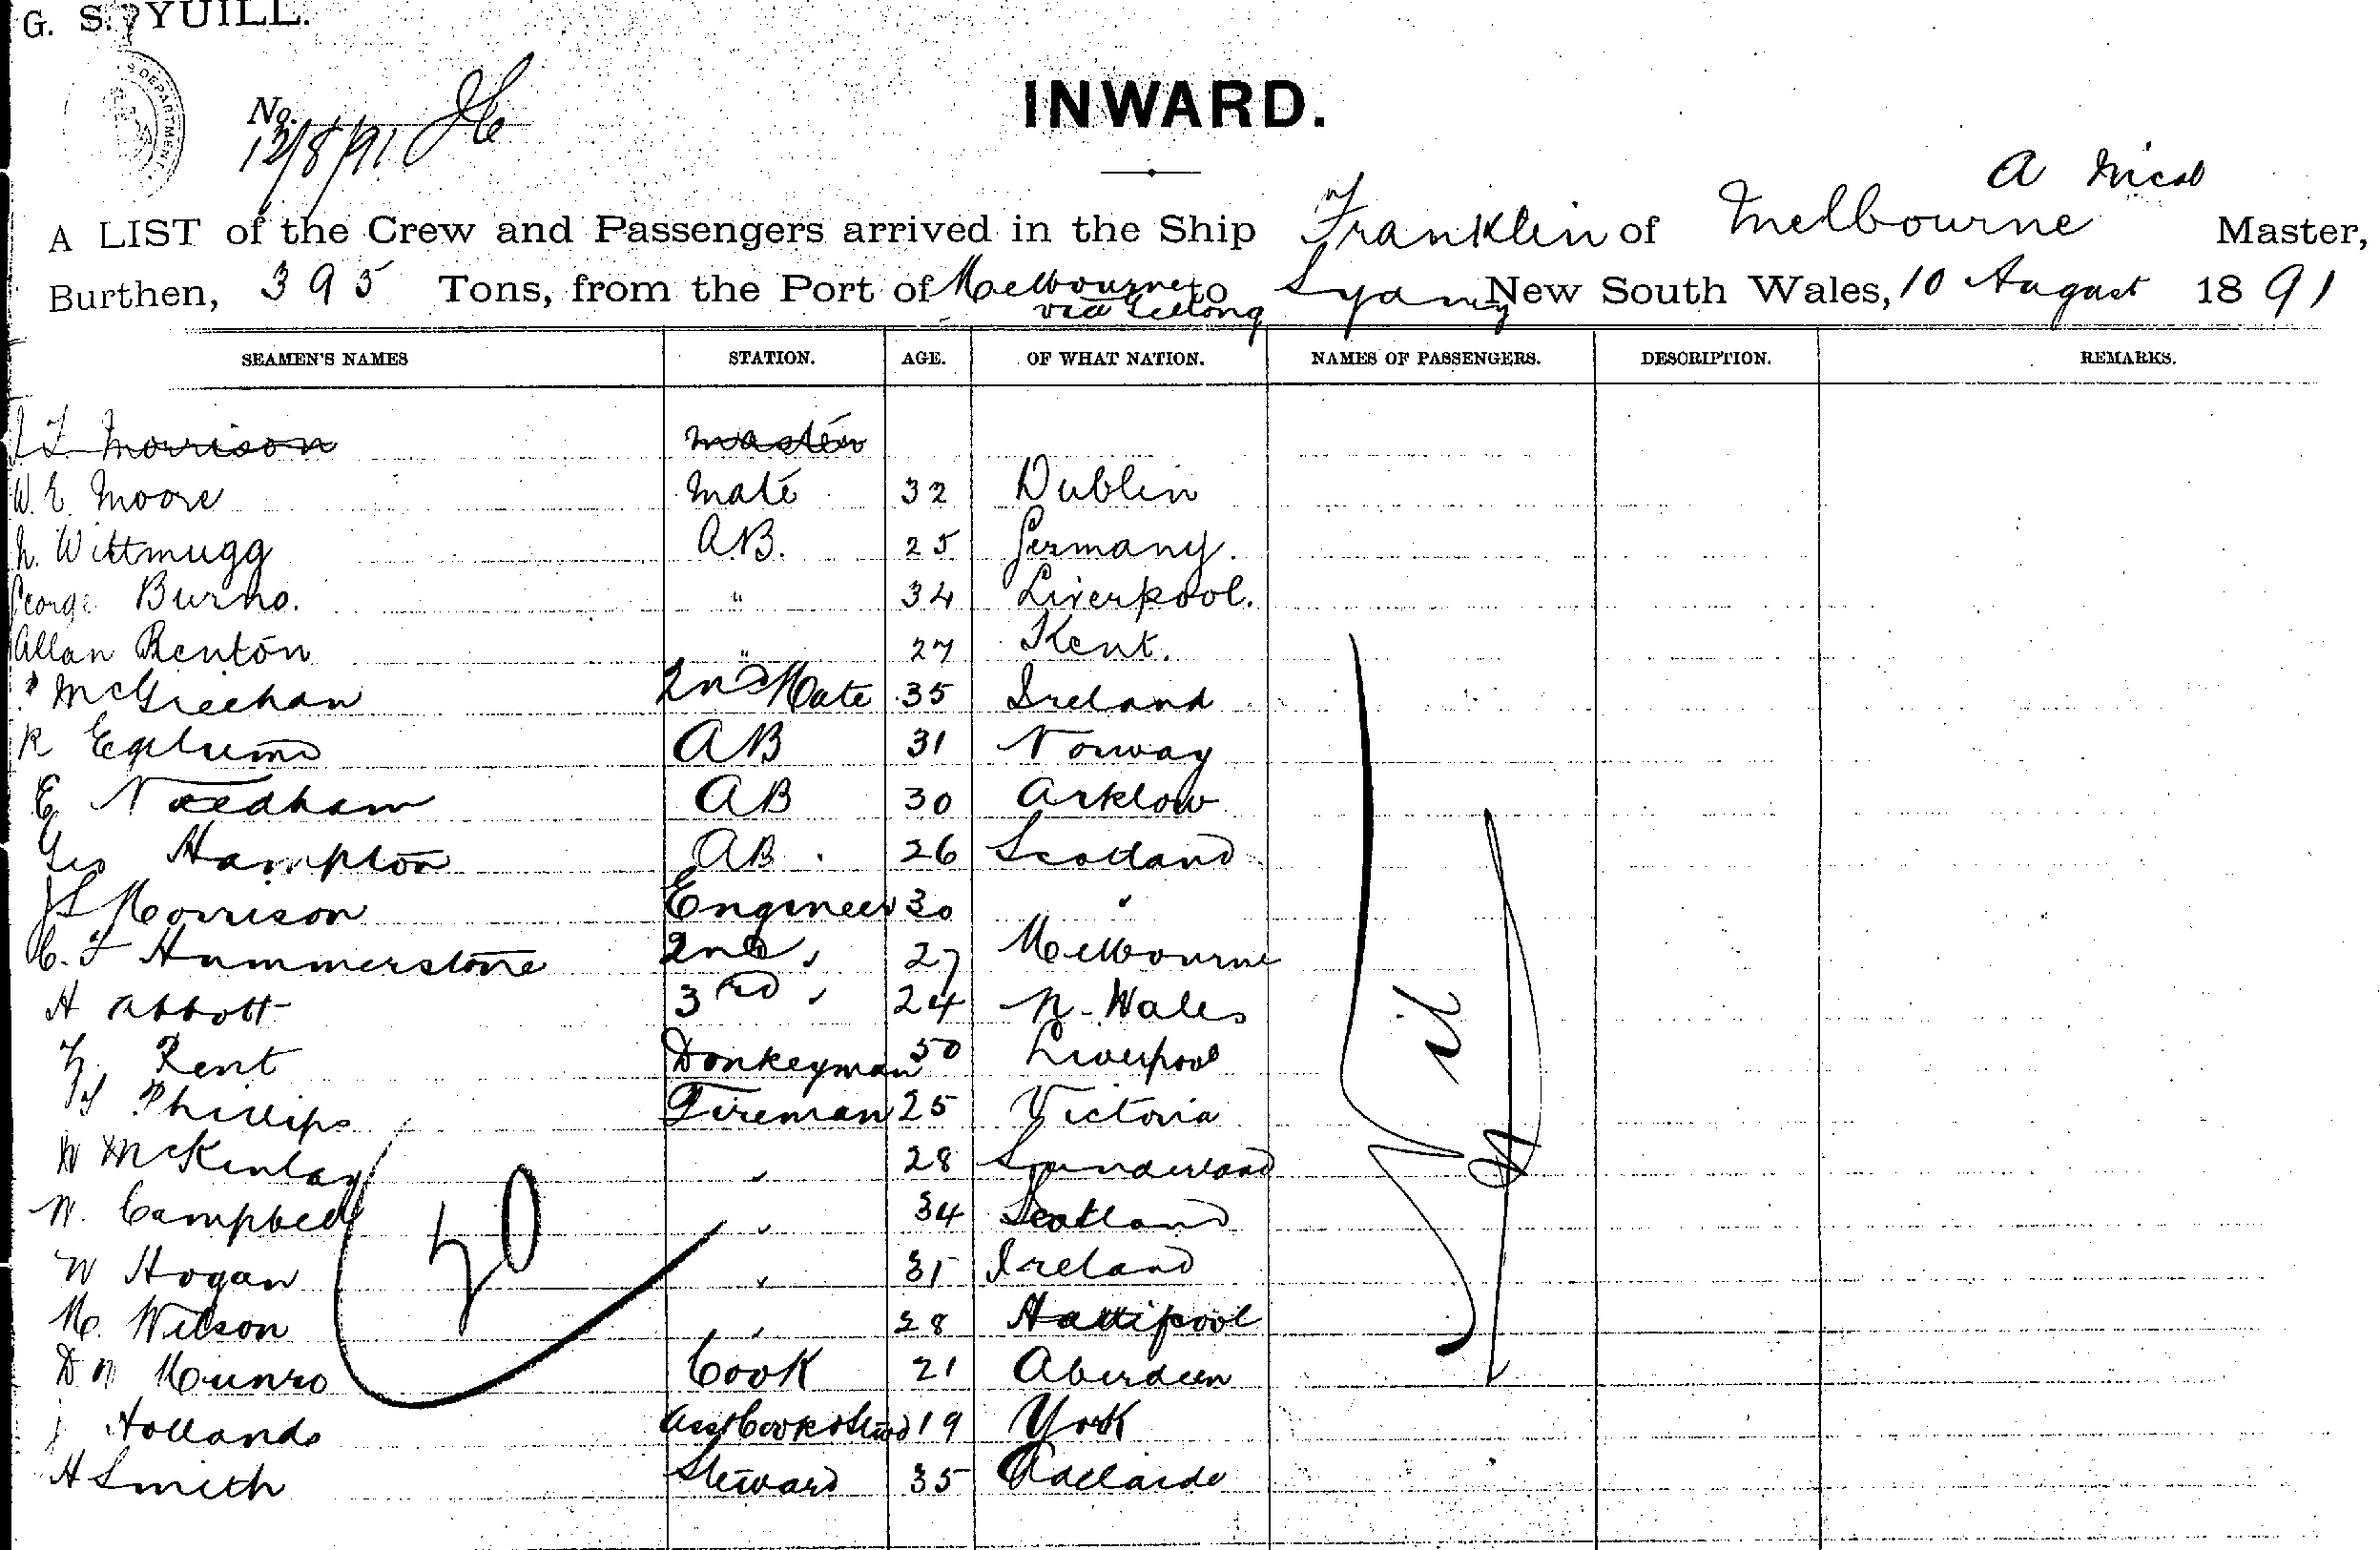 G. S. YUILL.
DEPARTMENT
No.
12/8/91
INWARD.
A
A LIST of the Crew and Passengers arrived in the Ship Franklin of Melbourne Master,
Burthen, 395 Tons, from the Port of Melbourne to Sydney New South Wales, 10 August 1891
via Geelong
SEAMEN'S NAMES STATION. AGE. OF WHAT NATION. NAMES OF PASSENGERS. DESCRIPTION. REMARKS.
Morrison master
W. E. Moore mate 32 Dublin
Wittmugg A.B. 25 Germany.
George Burns. " 34 Liverpool.
Allan Renton " 27 Kent.
McGreehan 2nd Mate 35 Ireland
R AB 31 Norway
E Needham AB 30 Arklow
Geo Hampton AB. 26 Scotland
J L Morrison Engineer 30 "
C. F Hummerstone 2nd " 27 Melbourne
A Abbott 3rd " 24 N. Wales
Kent Donkeyman 50 Liverpool
Phillips Fireman 25 Victoria
W McKinlay " 28 Sunderland
N. Campbell " 34 Scotland
W Hogan " 31 Ireland
M. Wilson " " 28 Hartlipool
D M Munro Cook 21 Aberdeen
Hollands Asst Cook & Stwd 19 York
H Smith Steward 35 Adelaide
20
Nil